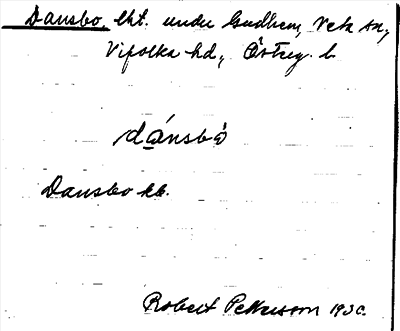 Dansbo, lht. under Gudhem, Veta sn,
Vifolka hd, Österg. l.
dánsbò
Dansbo kb.
Robert Petterson 1930.